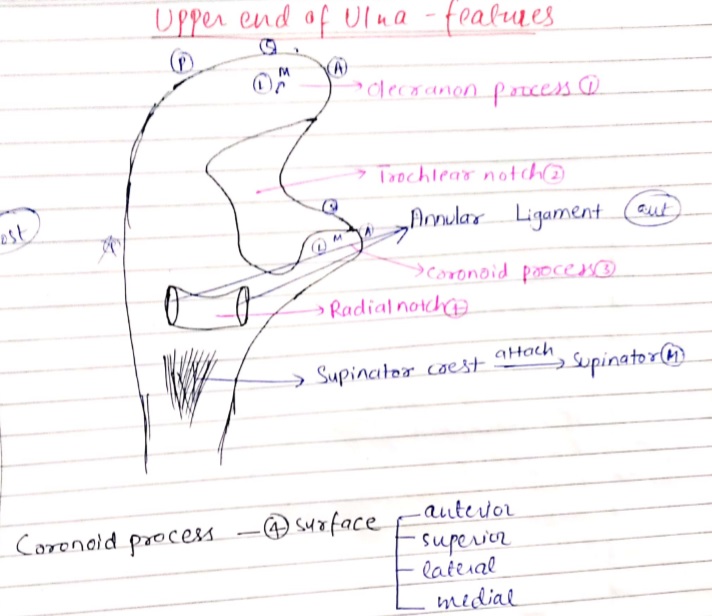 Upper end of Ulna - features
P
S
A
L M
olecranon process ①
Trochlear notch ②
S
A
L M
Annular Ligament ant
ost
coronoid process ③
Radial notch ④
Supinator crest attach → Supinator Ⓜ
Coronoid process - ④ surface
anterior
superior
lateral
medial